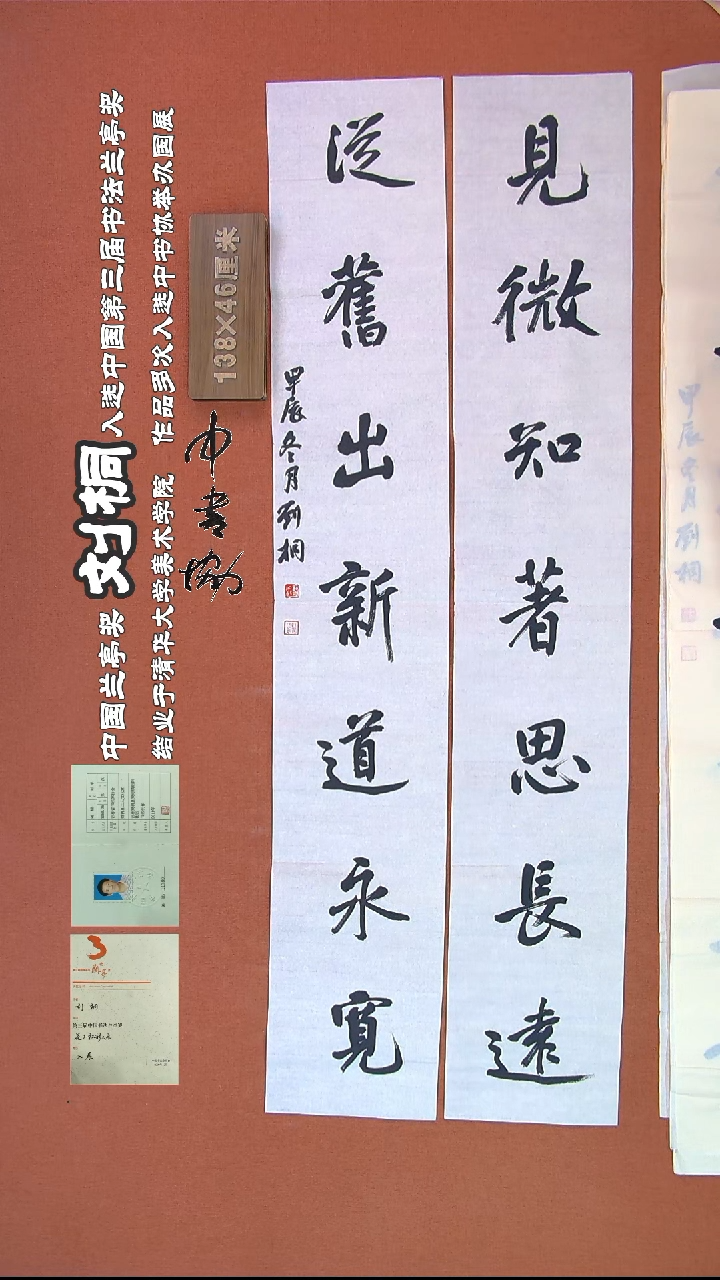 見微知著思長遠
從舊出新道永寬
甲辰冬月劉桐
138×46厘米
中国兰亭奖 刘桐 入选中国第三届书法兰亭奖
结业于清华大学美术学院 作品多次入选中书协举办国展
甲辰冬月劉桐